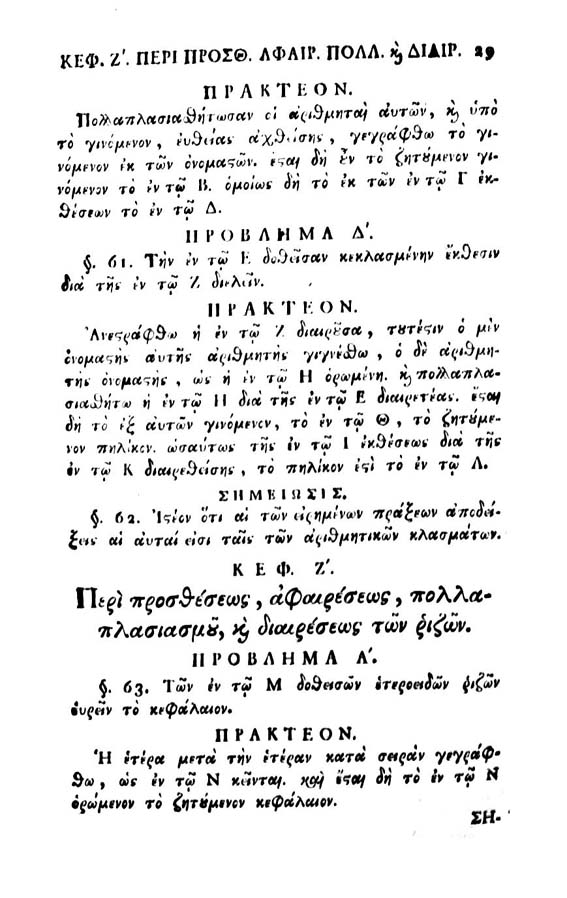 ΚΕΦ. Ζ'. ΠΕΡΙ ΠΡΟΣΘ. ΑΦΑΙΡ. ΠΟΛΛ. ϗ ΔΙΑΙΡ. 29
ΠΡΑΚΤΕΟΝ.
Πολλαπλασιαθήτωσαν οἱ ἀριθμηταὶ αὐτῶν, ϗ ὑπὸ
τὸ γινόμενον, εὐθείας ἀχθείσης, γεγράφθω τὸ γι-
νόμενον ἐκ τῶν ὀνομαστῶν. ἔσται δὴ ἓν τὸ ζητούμενον γι-
νόμενον τὸ ἐν τῷ Β. ὁμοίως δὴ τὸ ἐκ τῶν ἐν τῷ Γ ἐκ-
θέσεων τὸ ἐν τῷ Δ.
ΠΡΟΒΛΗΜΑ Δ'.
§. 61. Τὴν ἐν τῷ Ε δοθεῖσαν κεκλασμένην ἔκθεσιν
διὰ τῆς ἐν τῷ Ζ διελεῖν.
ΠΡΑΚΤΕΟΝ.
Ἀνεστράφθω ἡ ἐν τῷ Ζ διαιροῦσα, τουτέστιν ὁ μὲν
ὀνομαστὴς αὐτῆς ἀριθμητὴς γιγνέσθω, ὁ δὲ ἀριθμη-
τὴς ὀνομαστὴς, ὡς ἡ ἐν τῷ Η ὁρωμένη. ϗ πολλαπλα-
σιαθήτω ἡ ἐν τῷ Η διὰ τῆς ἐν τῷ Ε διαιρετέας. ἔσται
δὴ τὸ ἐξ αὐτῶν γινόμενον, τὸ ἐν τῷ Θ, τὸ ζητούμε-
νον πηλίκον. ὡσαύτως τῆς ἐν τῷ Ι ἐκθέσεως διὰ τῆς
ἐν τῷ Κ διαιρεθείσης, τὸ πηλίκον ἐστὶ τὸ ἐν τῷ Λ.
ΣΗΜΕΙΩΣΙΣ.
§. 62. Ἰστέον ὅτι αἱ τῶν εἰρημένων πράξεων ἀποδεί-
ξεις αἱ αὐταί εἰσι ταῖς τῶν ἀριθμητικῶν κλασμάτων.
ΚΕΦ. Ζ'.
Περὶ προσθέσεως, ἀφαιρέσεως, πολλα-
πλασιασμοῦ, ϗ διαιρέσεως τῶν ῥιζῶν.
ΠΡΟΒΛΗΜΑ Α'.
§. 63. Τῶν ἐν τῷ Μ δοθεισῶν ἑτεροειδῶν ῥιζῶν
εὑρεῖν τὸ κεφάλαιον.
ΠΡΑΚΤΕΟΝ.
Ἡ ἑτέρα μετὰ τὴν ἑτέραν κατὰ σειρὰν γεγράφ-
θω, ὡς ἐν τῷ Ν κεῖνται. καὶ ἔσται δὴ τὸ ἐν τῷ Ν
ὁρώμενον τὸ ζητούμενον κεφάλαιον.
ΣΗ-